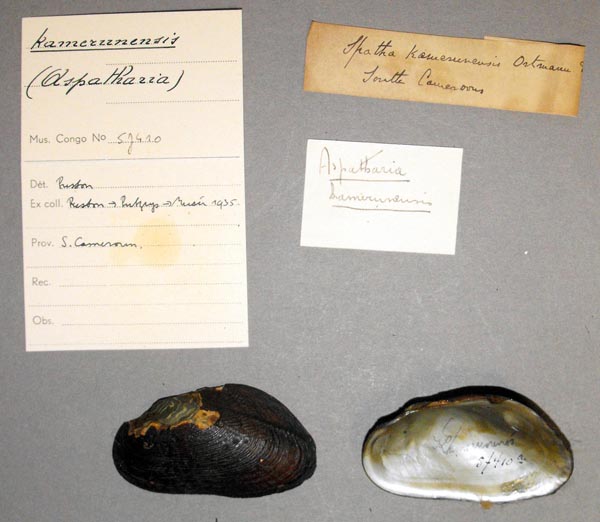 kamerunensis
(Aspatharia)
Mus. Congo No 57410
Dét. Preston
Ex coll. Preston → Putzeys → Musée 1935.
Prov. S. Cameroun.
Rec.
Obs.
Spatha kamerunensis Ortmann
South Cameroons
Aspatharia
kamerunensis